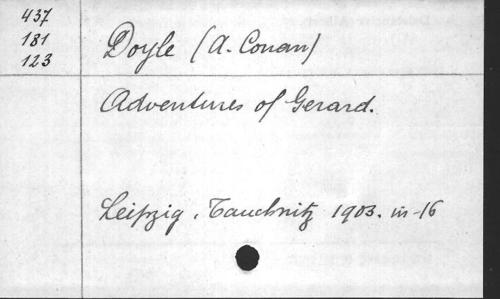 437
181
123
Doyle (A. Conan)
Adventures of Gerard.
Leipzig, Tauchnitz 1903. in-16